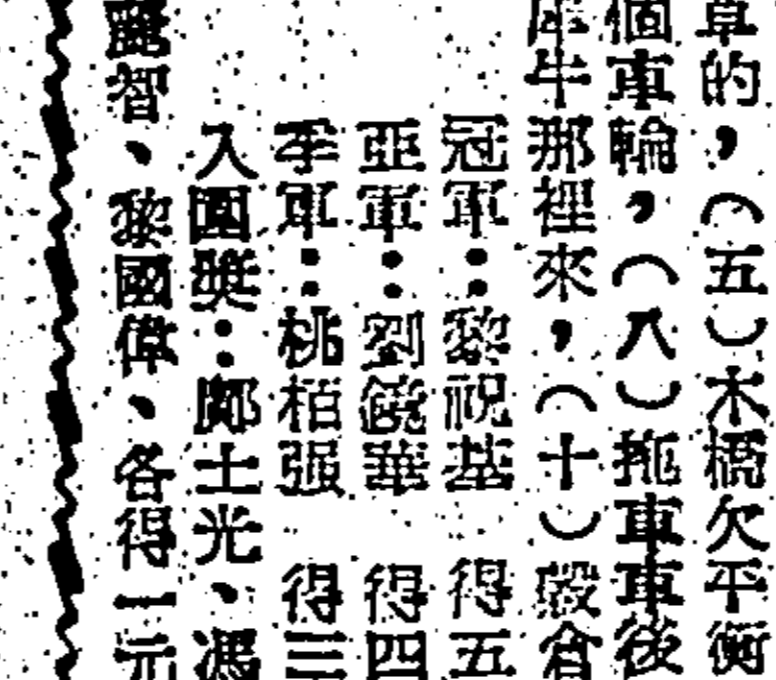 的，（五）木橋欠平衡
個車輪，（八）拖車車後
犀牛那裡來，（十）穀倉
冠軍：黎祝基　得五
亞軍：劉饒華　得四
季軍：桃栢强　得三
入圍獎：鄭士光、馮
麗智、黎國偉、各得一元